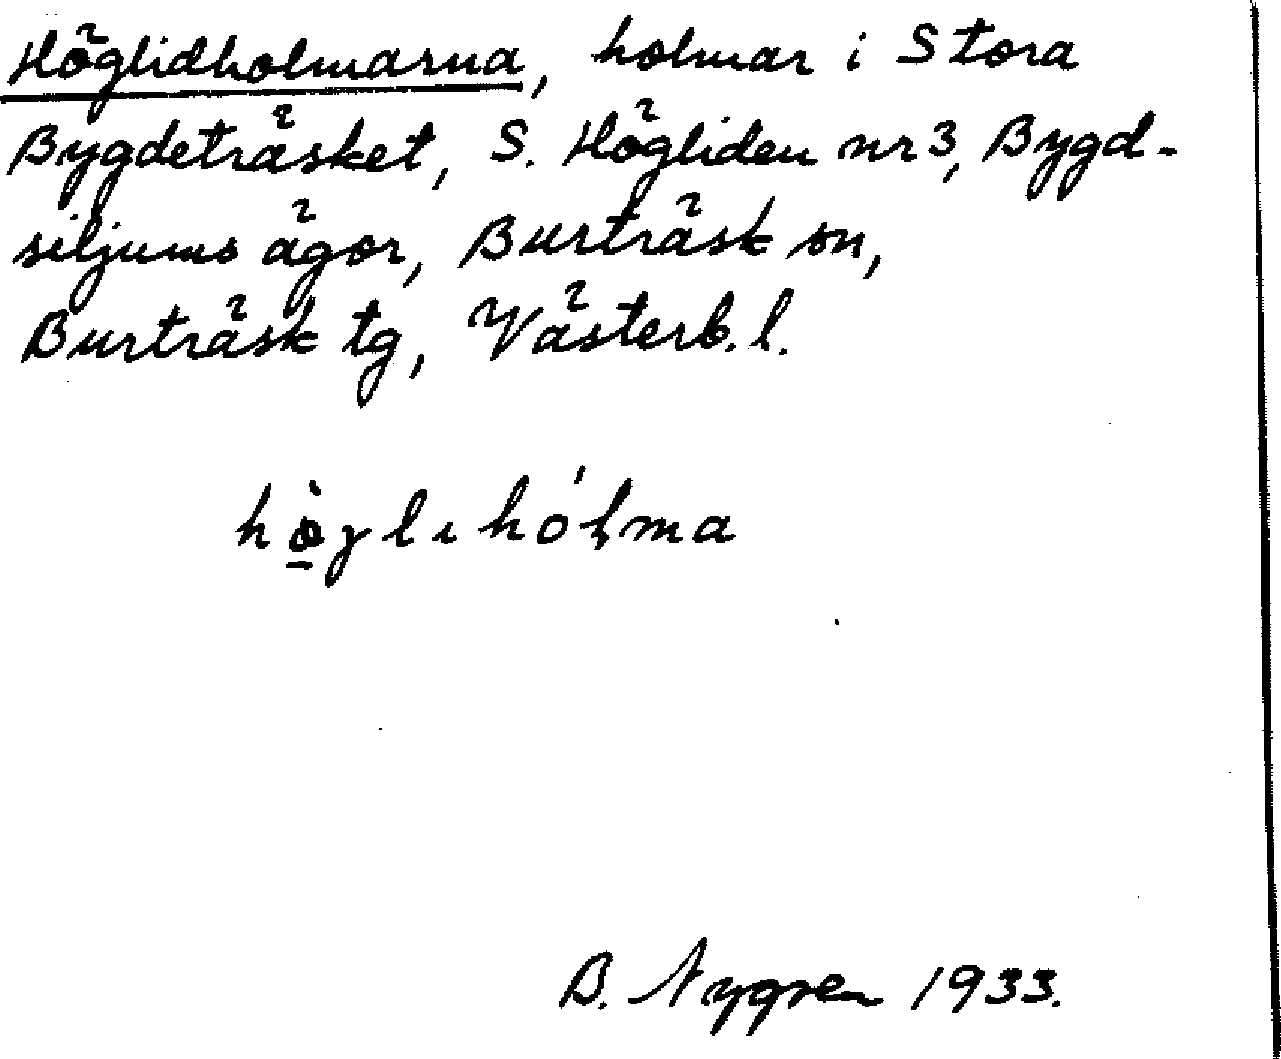 Höglidholmarna, holmar i Stora
Bygdeträsket, S. Högliden nr 3, Bygd-
siljums ägor, Burträsk sn,
Burträsk tg, Västerb. l.
B. Nygren 1933.